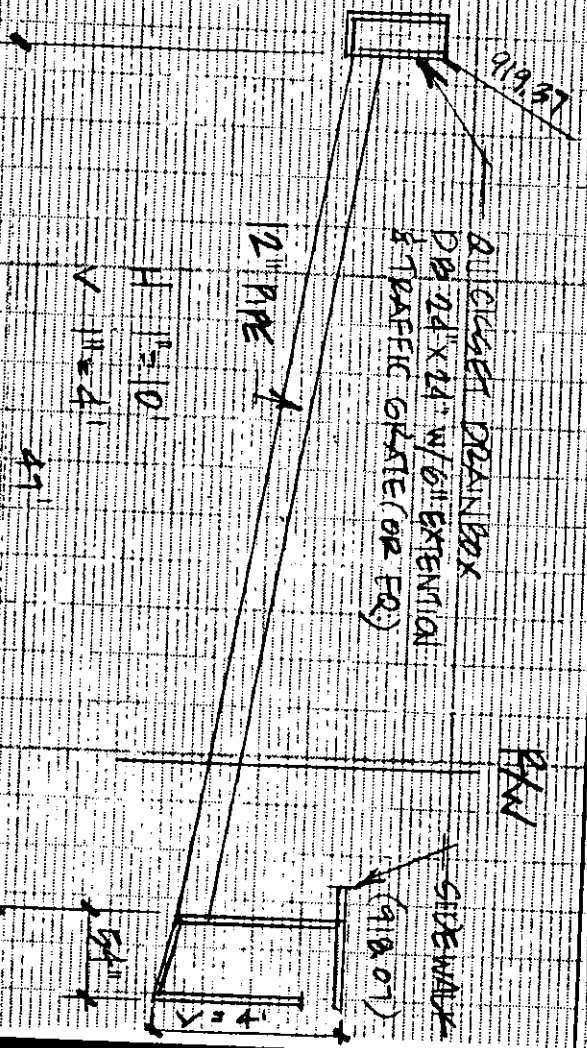 919.37
DRAINBOX
24" X 24" W/6" EXTENTION
& TRAFFIC GRATE (OR EQ)
12" PIPE
H 1" = 10'
V 1" = 4'
R/W
SIDEWALK
54"
V = 4'